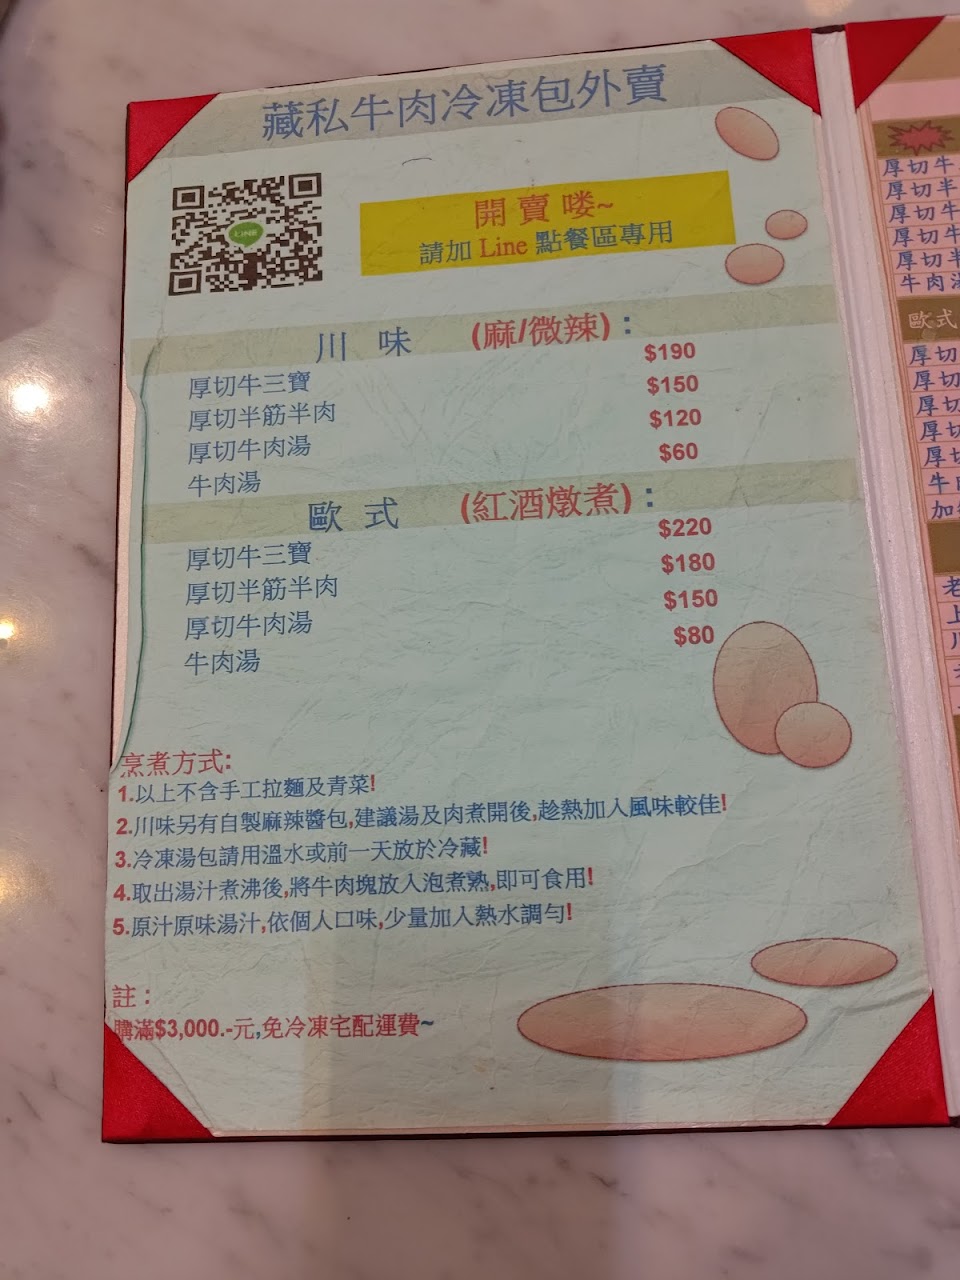 藏私牛肉冷凍包外賣
LINE
開賣喽~
請加 Line 點餐區專用
川 味 (麻/微辣)：
厚切牛三寶 $190
厚切半筋半肉 $150
厚切牛肉湯 $120
牛肉湯 $60
歐 式 (紅酒燉煮)：
厚切牛三寶 $220
厚切半筋半肉 $180
厚切牛肉湯 $150
牛肉湯 $80
烹煮方式:
1.以上不含手工拉麵及青菜!
2.川味另有自製麻辣醬包,建議湯及肉煮開後,趁熱加入風味較佳!
3.冷凍湯包請用溫水或前一天放於冷藏!
4.取出湯汁煮沸後,將牛肉塊放入泡煮熟,即可食用!
5.原汁原味湯汁,依個人口味,少量加入熱水調勻!
註：
購滿$3,000.-元,免冷凍宅配運費~
厚切牛
厚切半
厚切牛
厚切牛
厚切半
牛肉湯
歐式
厚切
厚切
厚切
厚切
厚切
牛肉
加
老
上